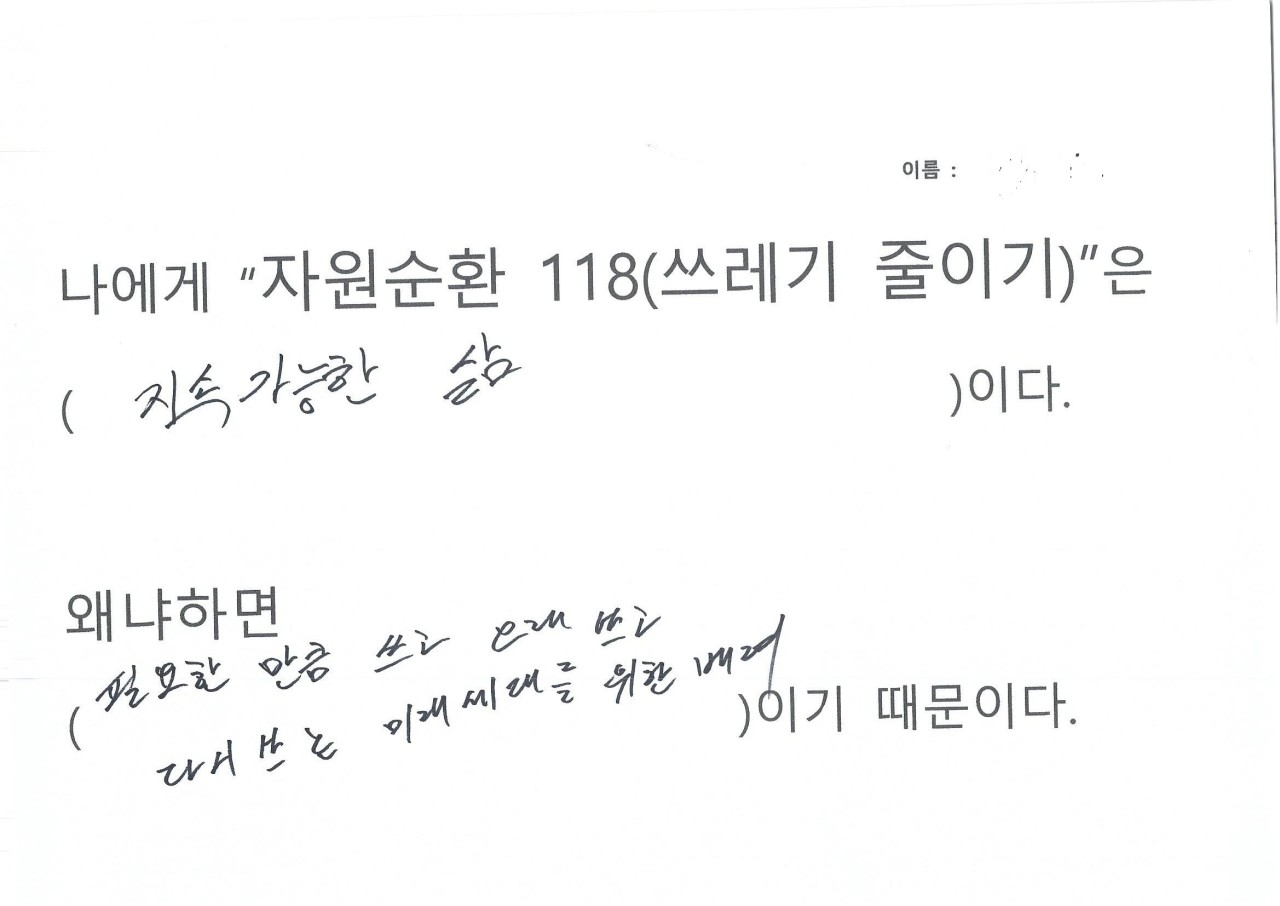 이름 :
나에게 “자원순환 118(쓰레기 줄이기)”은
( 지속가능한 삶 )이다.
왜냐하면
( 필요한 만큼 쓰고 오래 쓰고
다시 쓰는 미래세대를 위한 배려 )이기 때문이다.